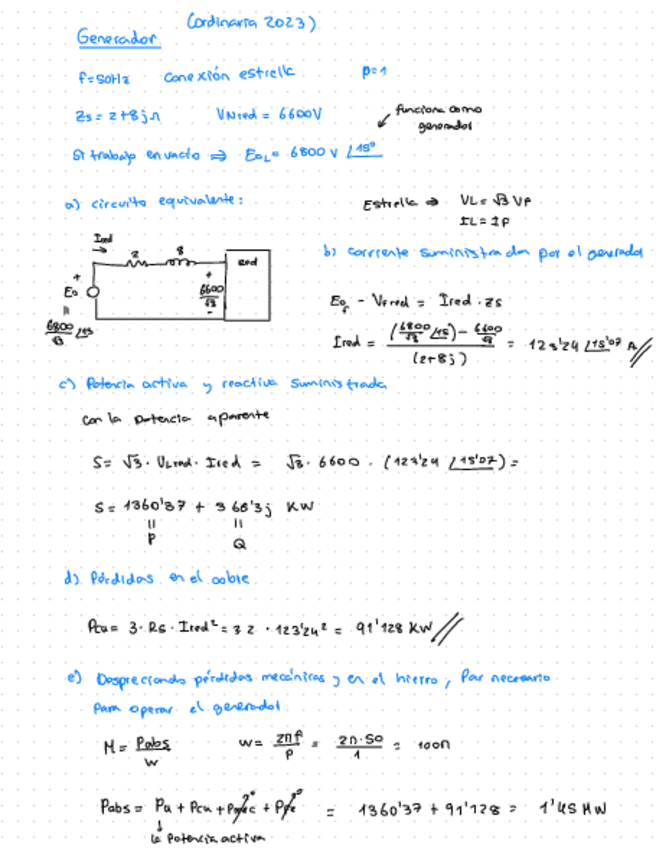 (ordinaria 2023)
Generador
f=50Hz conexión estrella p=1
Zs= 2+8j Ω VNred = 6600V funciona como generador
Si trabajo en vacío ⇒ EoL= 6800 V ∠15°
a) circuito equivalente:
Estrella ⇒ VL= √3 VP
IL= IP
Ired
2 8 Red
+ Eo
+ 6600/√3 -
6800/√3 ∠15
b) corriente suministrada por el generador
Eof - VFred = Ired · Zs
Ired = ((6800/√3 ∠15) - 6600/√3) / (2+8j) = 123'24 ∠15'07 A //
c) Potencia activa y reactiva suministrada
Con la potencia aparente
S= √3 · VLred · Ired = √3 · 6600 · (123'24 ∠15'07) =
S= 1360'37 + 366'3j KW
P Q
d) Pérdidas en el cobre
Pcu= 3 · Rs · Ired² = 3 2 · 123'24² = 91'128 KW //
e) Despreciando pérdidas mecánicas y en el hierro, Par necesario
para operar el generador
M= Pabs/w w= 2πf/p = 2π·50/1 = 100π
Pabs= Pu + Pcu + Pmec⁰ + Pfe⁰ = 1360'37 + 91'128 = 1'45 MW
↳ Potencia activa